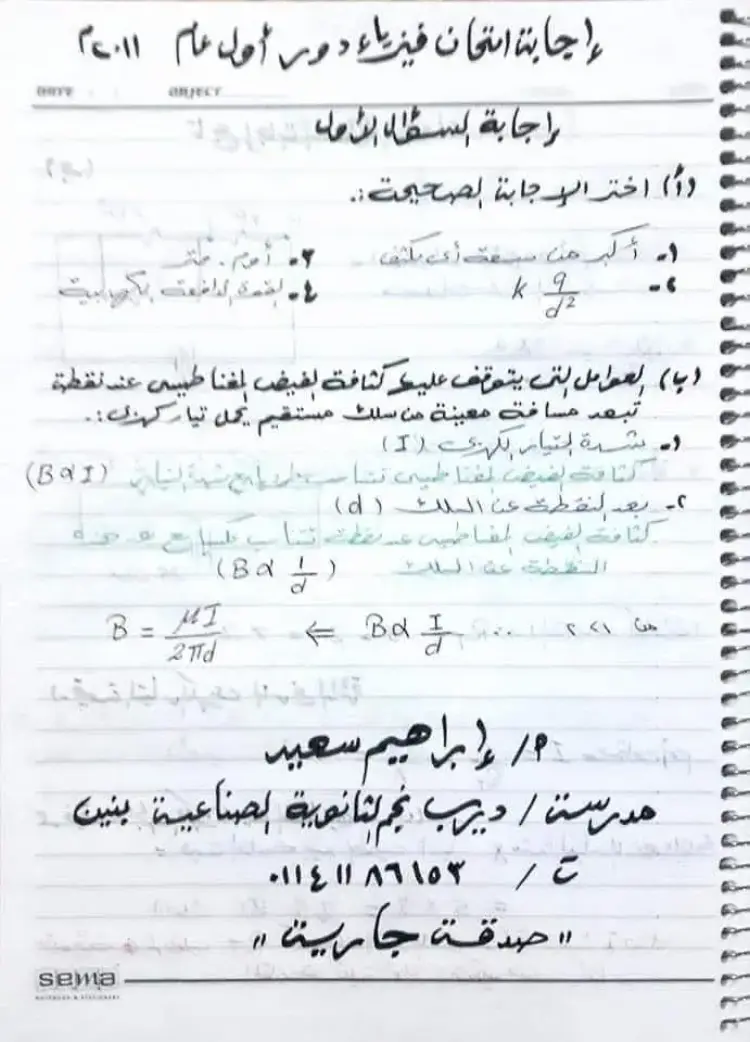 إجابة امتحان فيزياء دور أول عام ٢٠١١م
DATE OBJECT
إجابة السؤال الأول
(أ) اختر الإجابة الصحيحة:.
١- أكبر من سعة أى مكثف ٣- أوم. متر
٢- k q/d² ٤- القوة الدافعة الكهربية
(ب) العوامل التى يتوقف عليها كثافة الفيض المغناطيسى عند نقطة
تبعد مسافة معينة من سلك مستقيم يحمل تيار كهربى:.
١- شدة التيار الكهربى (I)
كثافة الفيض المغناطيسى تتناسب طرديا مع شدة التيار (B α I)
٢- بعد النقطة عن السلك (d)
كثافة الفيض المغناطيسى عند نقطة تتناسب عكسيا مع بعد هذه
النقطة عن السلك (B α 1/d)
من ١، ٢ ∴ B α I/d ⇐ B = μI/2πd
م/ إبراهيم سعيد
مدرسة / ديرب نجم الثانوية الصناعية بنين
ت / ٠١١٤١١٨٦١٥٣
"صدقة جارية"
sema